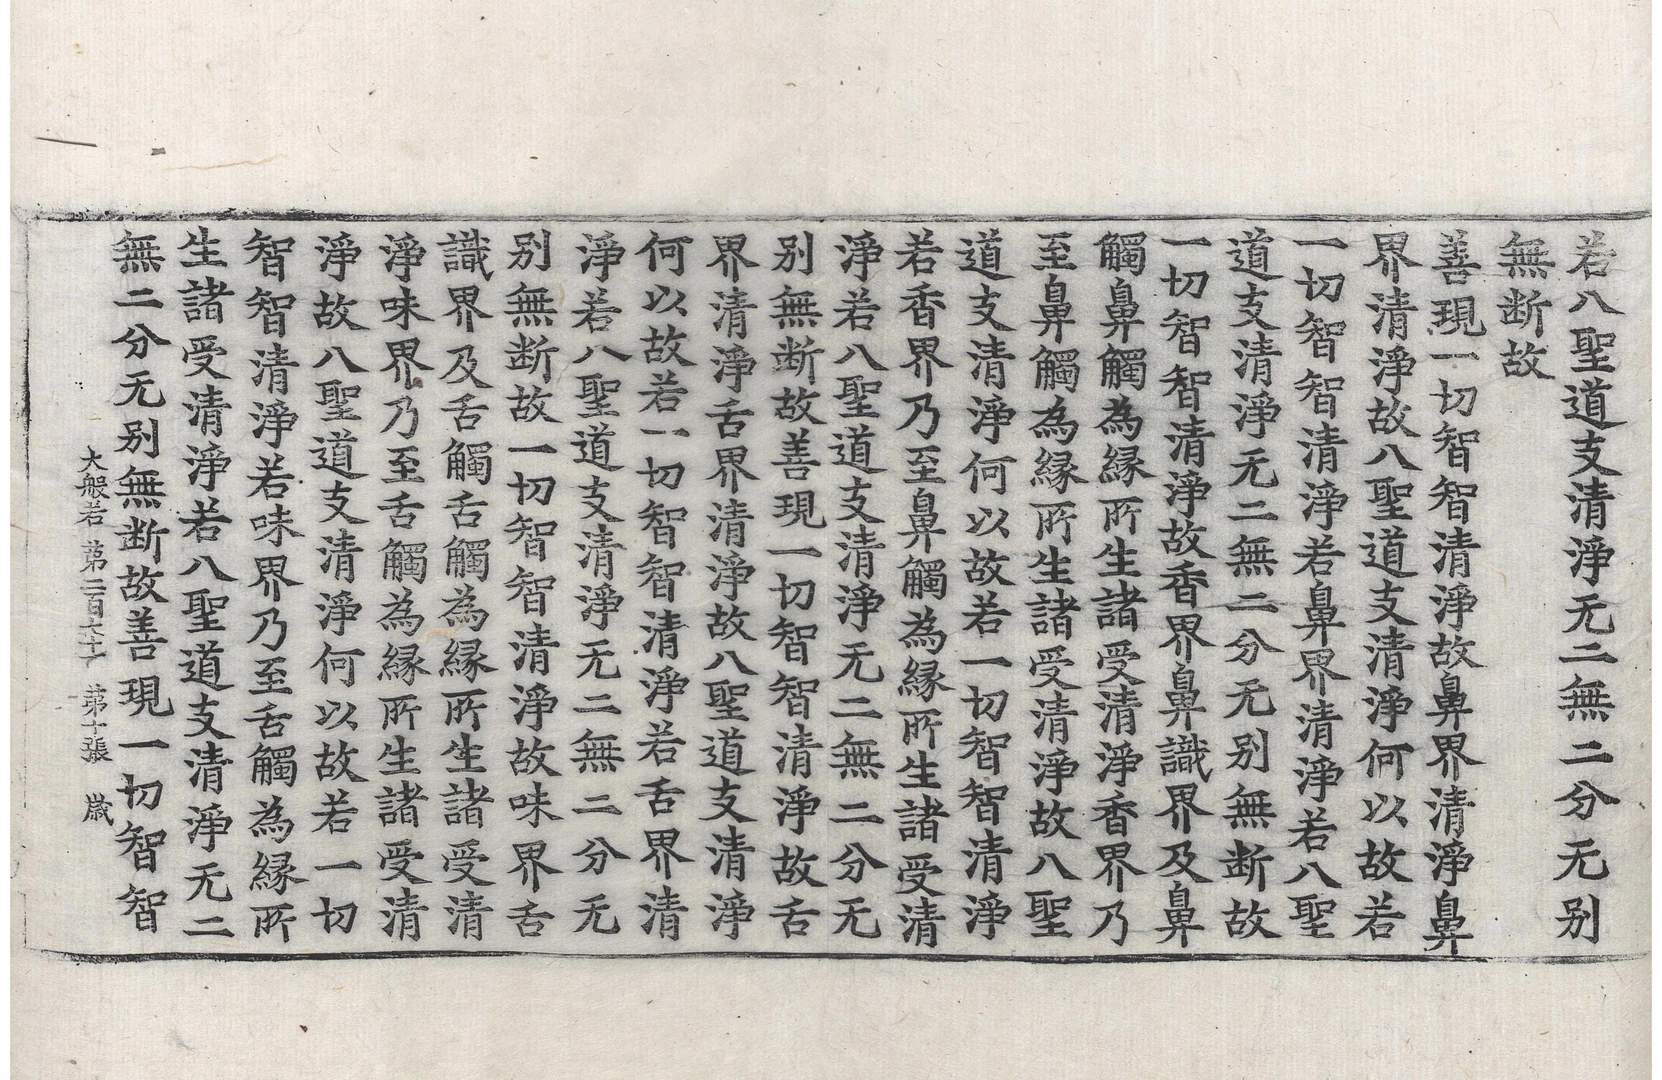 若八聖道支清淨无二無二分无别
無断故
善現一切智智清淨故鼻界清淨鼻
界清淨故八聖道支清淨何以故若
一切智智清淨若鼻界清淨若八聖
道支清淨无二無二分无别無断故
一切智智清淨故香界鼻識界及鼻
觸鼻觸為縁所生諸受清淨香界乃
至鼻觸為縁所生諸受清淨故八聖
道支清淨何以故若一切智智清淨
若香界乃至鼻觸為縁所生諸受清
淨若八聖道支清淨无二無二分无
别無断故善現一切智智清淨故舌
界清淨舌界清淨故八聖道支清淨
何以故若一切智智清淨若舌界清
淨若八聖道支清淨无二無二分无
别無断故一切智智清淨故味界舌
識界及舌觸舌觸為縁所生諸受清
淨味界乃至舌觸為縁所生諸受清
淨故八聖道支清淨何以故若一切
智智清淨若味界乃至舌觸為縁所
生諸受清淨若八聖道支清淨无二
無二分无别無断故善現一切智智
大般若 第二百六十 第十張 歲